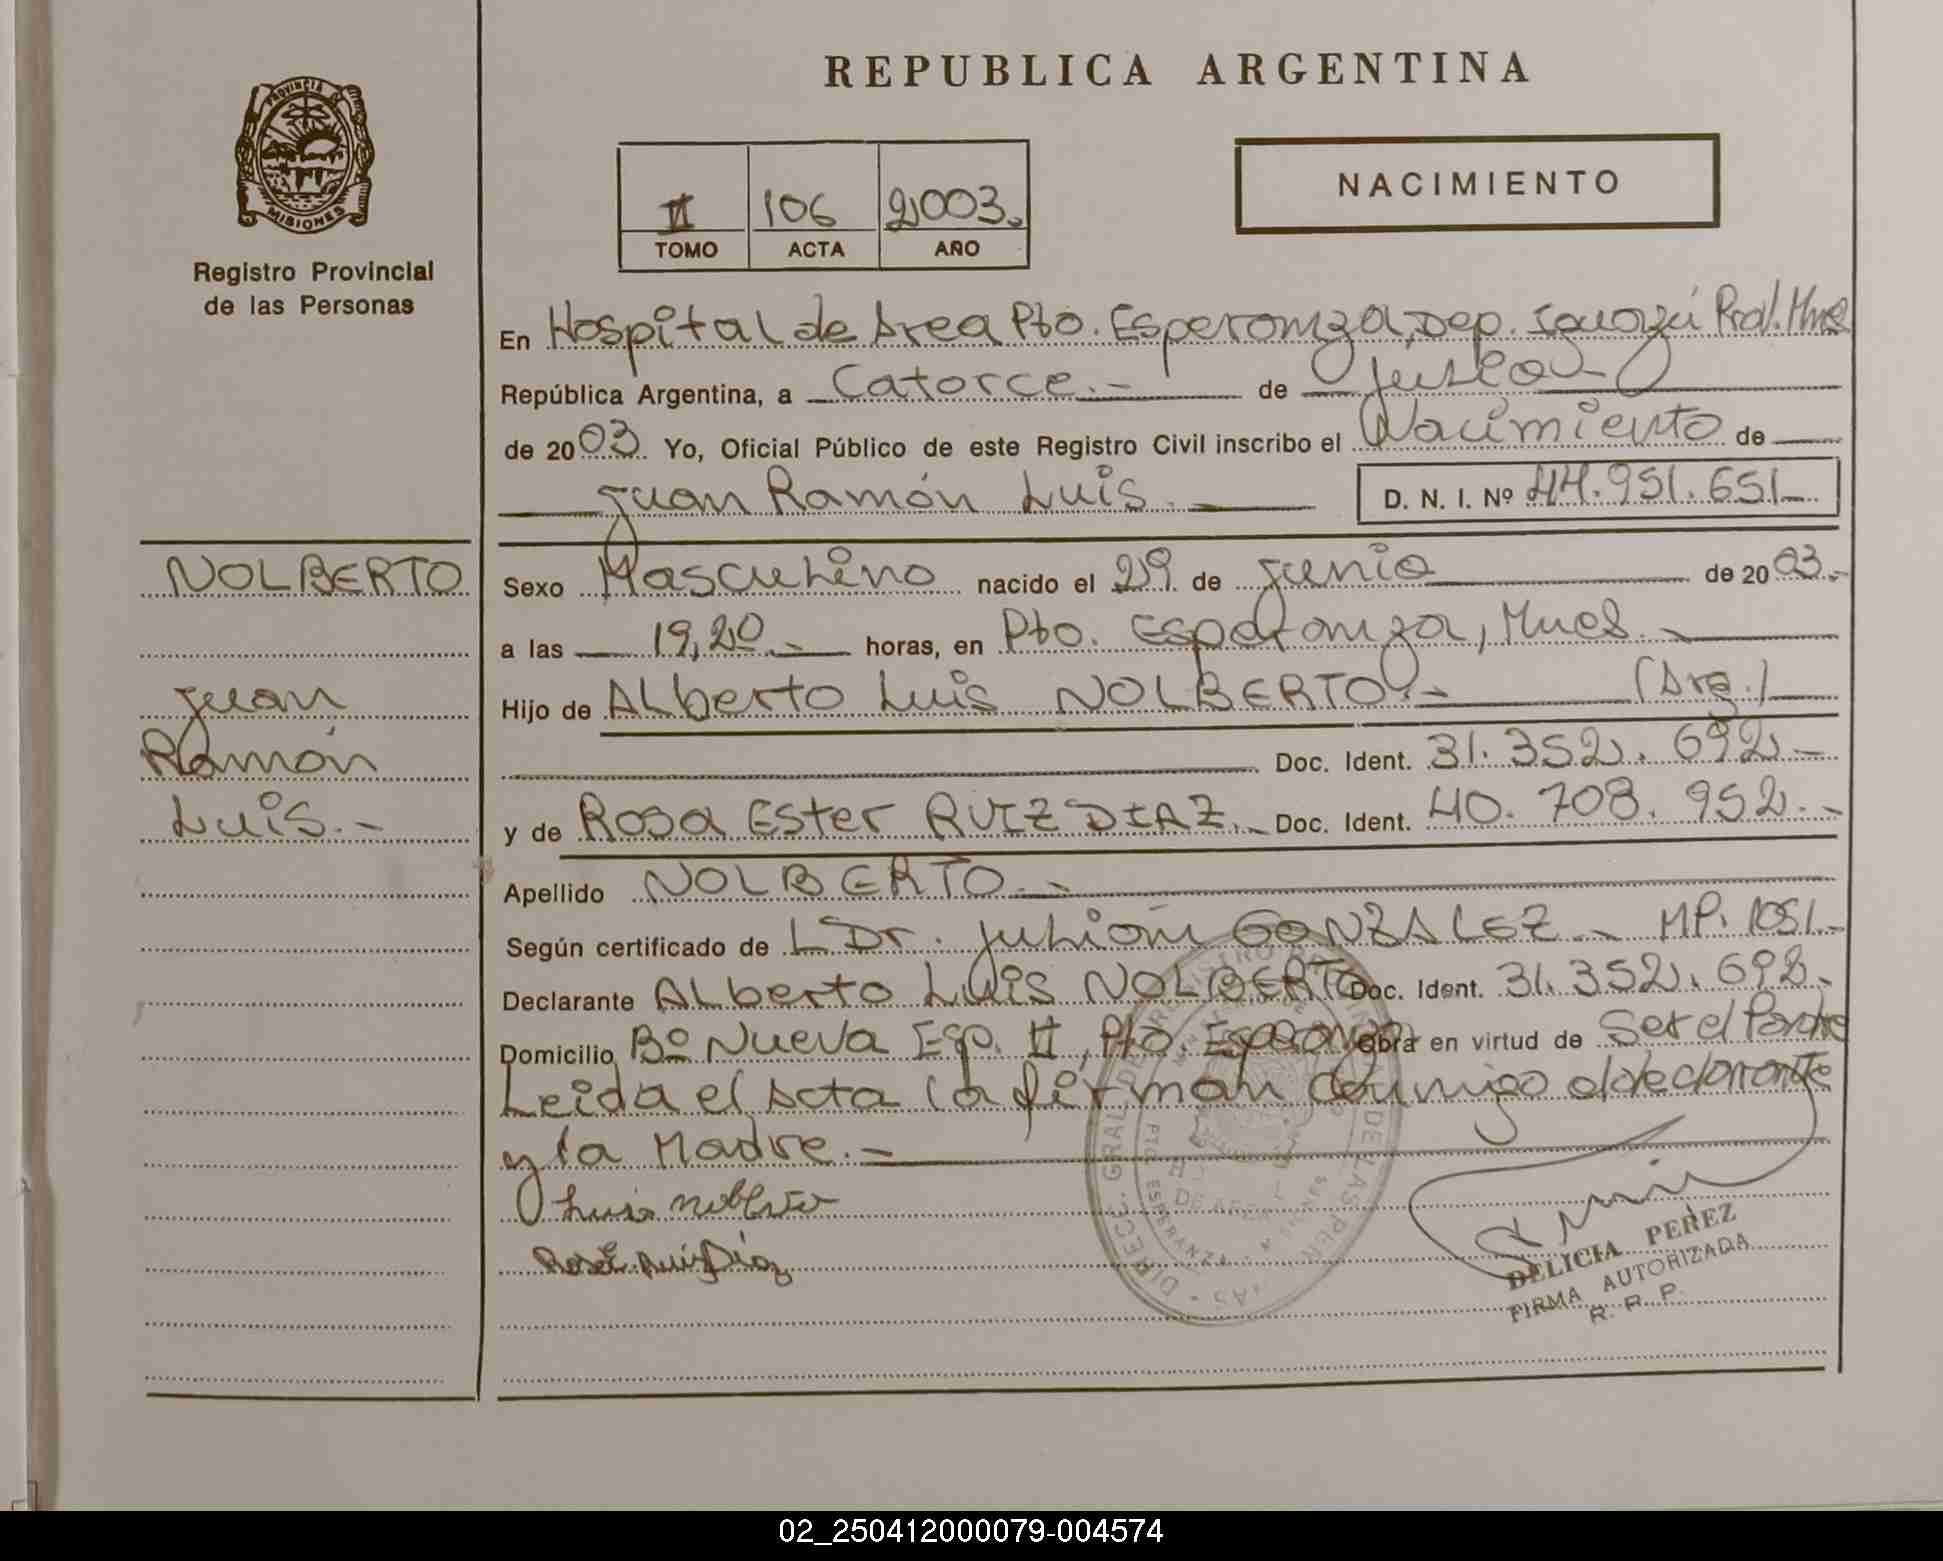 REPUBLICA ARGENTINA
PROVINCIA DE
MISIONES
Registro Provincial
de las Personas
II 106 2003.
TOMO ACTA AÑO
NACIMIENTO
En Hospital de Area Pto. Esperanza, Dep. Iguazú
República Argentina, a Catorce.- de julio
de 2003. Yo, Oficial Público de este Registro Civil inscribo el Nacimiento de
Juan Ramón Luis. D. N. I. Nº 44.951.651
NOLBERTO
Juan
Ramón
Luis.-
Sexo Masculino nacido el 29 de junio de 2003.-
a las 19,20.- horas, en Pto. Esperanza, Mnes.
Hijo de Alberto Luis NOLBERTO.- (Arg.)
Doc. Ident. 31.352.692.-
y de Rosa Ester RUIZ DIAZ.- Doc. Ident. 40.708.952.-
Apellido NOLBERTO.-
Según certificado de Dr. Julián GONZALEZ - MP. 1051.-
Declarante Alberto Luis NOLBERTO Doc. Ident. 31.352.692.
Domicilio Bº Nueva Esp. II, Pto Esperanza Obra en virtud de Ser el Padre
Leida el Acta la firman conmigo el declarante
y la Madre.-
Luis Nolberto
Rosa E. Ruiz Diaz
DELICIA PEREZ
FIRMA AUTORIZADA
R. P. P.
02_250412000079-004574